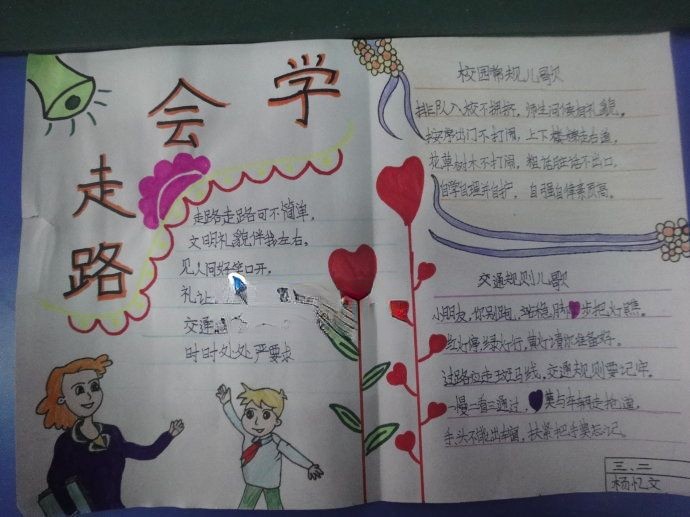 学会走路
走路走路可不简单，
文明礼貌伴我左右。
见人问好笑口开，
礼让
交通
时时处处严要求
校园常规儿歌
排队入校不拥挤，师生问候有礼貌。
按序出门不打闹，上下楼梯走右道。
花草树木不打闹，粗话脏话不出口。
自学自强并自护，自强自律素质高。
交通规则儿歌
小朋友，你别跑，站稳脚步把灯瞧。
红灯停绿灯行，黄灯请你准备好。
过路应走斑马线，交通规则要记牢。
一慢二看三通过，莫与车辆走抢道。
手头不能出车窗，扶紧把手莫忘记。
三、二
杨忆文